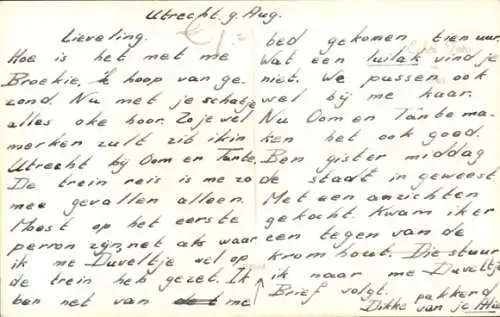 Utrecht. 9. Aug.
Lieveling.
Hoe is het met me
Broekie, ik hoop van ge-
zond. Nu met je schatje
alles oke hoor. Zo je wel
merken zult zit ik in
Utrecht bij Oom en Tante.
De trein reis is me zo
mee gevallen alleen.
Moest op het eerste
perron zijn, net als waar
ik me Duveltje wel op
de trein heb gezet. Ik
ben net van me
bed gekomen tien uur.
Wat een luilak vind je
niet. We passen ook
wel bij me kaar.
Nu Oom en Tante ma-
ken het ook goed.
Ben gister middag
de stadt in geweest
Met een anzichten
gekocht. Kwam ik er
een tegen van de
kromhout. Die stuur
ik naar me Duveltje
Brief volgt. pakkerd
Dikke van je